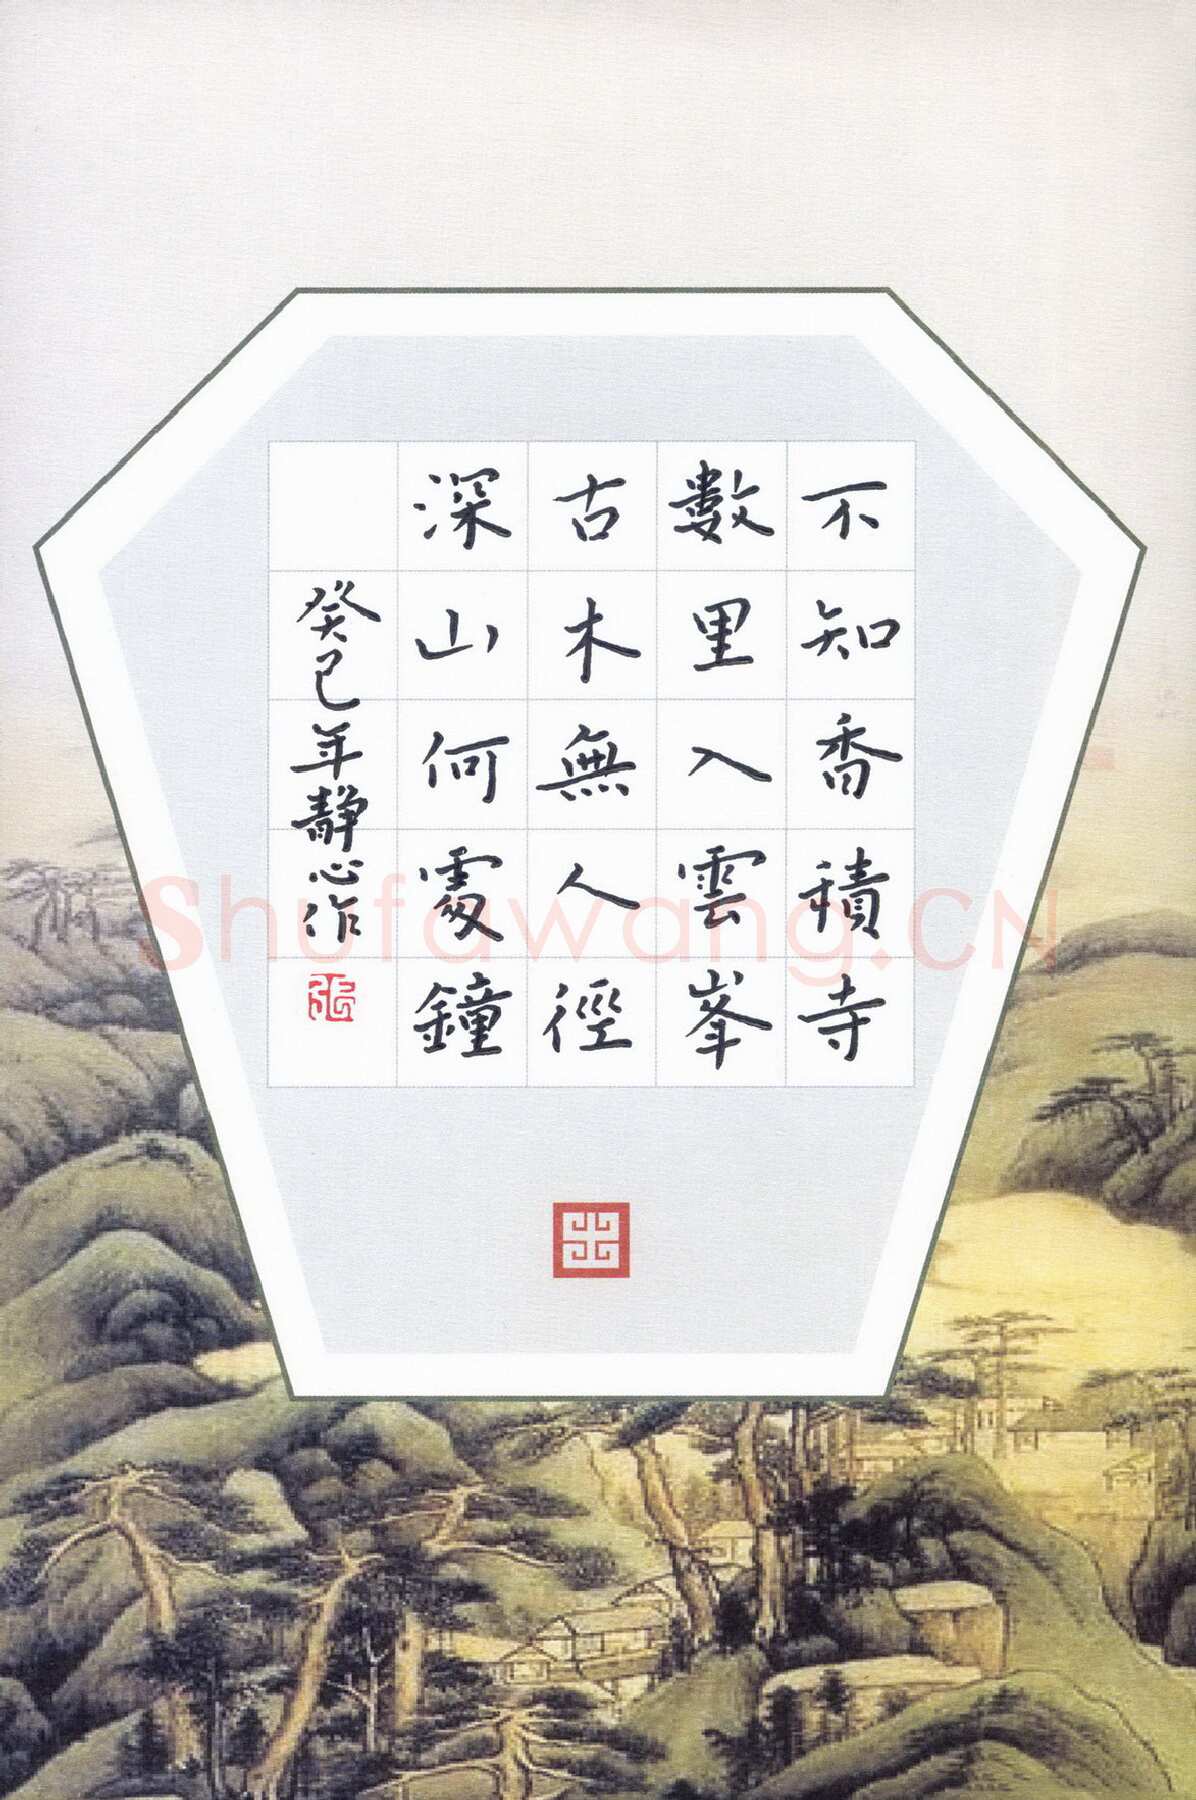 不知香積寺
數里入雲峯
古木無人徑
深山何處鐘
癸巳年靜心作
張
Shufawang.CN